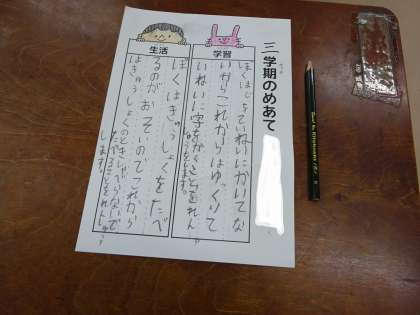 三学期のめあて
学習
ぼくは じをていねいにかいてな
いからこれからはゆっくりて
いねいに字をかくことをれん
しゅうをします。
生活
ぼくはきゅうしょくをたべ
るのがおそいのでこれから
はきゅうしょくのときしゃべらないで
たべることをれんしゅう
します。